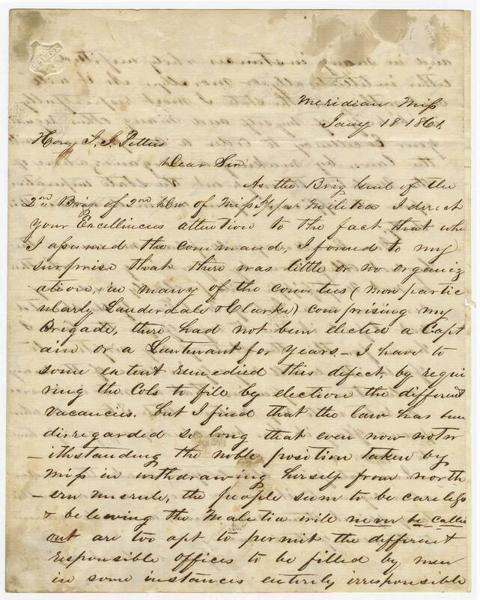 Meridian Miss
Jany 18 1861
Hon J. J. Pettus
Dear Sir
As the Brig Genl of the
2nd Brig of 2nd Div of Miss Militea I direct
your Excellincies attention to the fact, that when
I assumed the command, I found to my
surprise that there was little or no organiz
ation, in many of the counties (more partic
ularly Lauderdale & Clarke) comprising my
Brigade, there had not been elected a Capt
ain or a Lieutenant for years_ I have to
some extent remedied this defect, by requi
ring the Cols to fill by election the different
vacancies. but I find that the law has been
disregarded so long that even now notw
-ithstanding the noble position taken by
Miss in withdrawing herself from north
-ern misrule, the people seem to be careless
& believing the Malitia will never be called
out are too apt to permit the different
responsible offices to be filled by men
in some instances entirely irresponsible